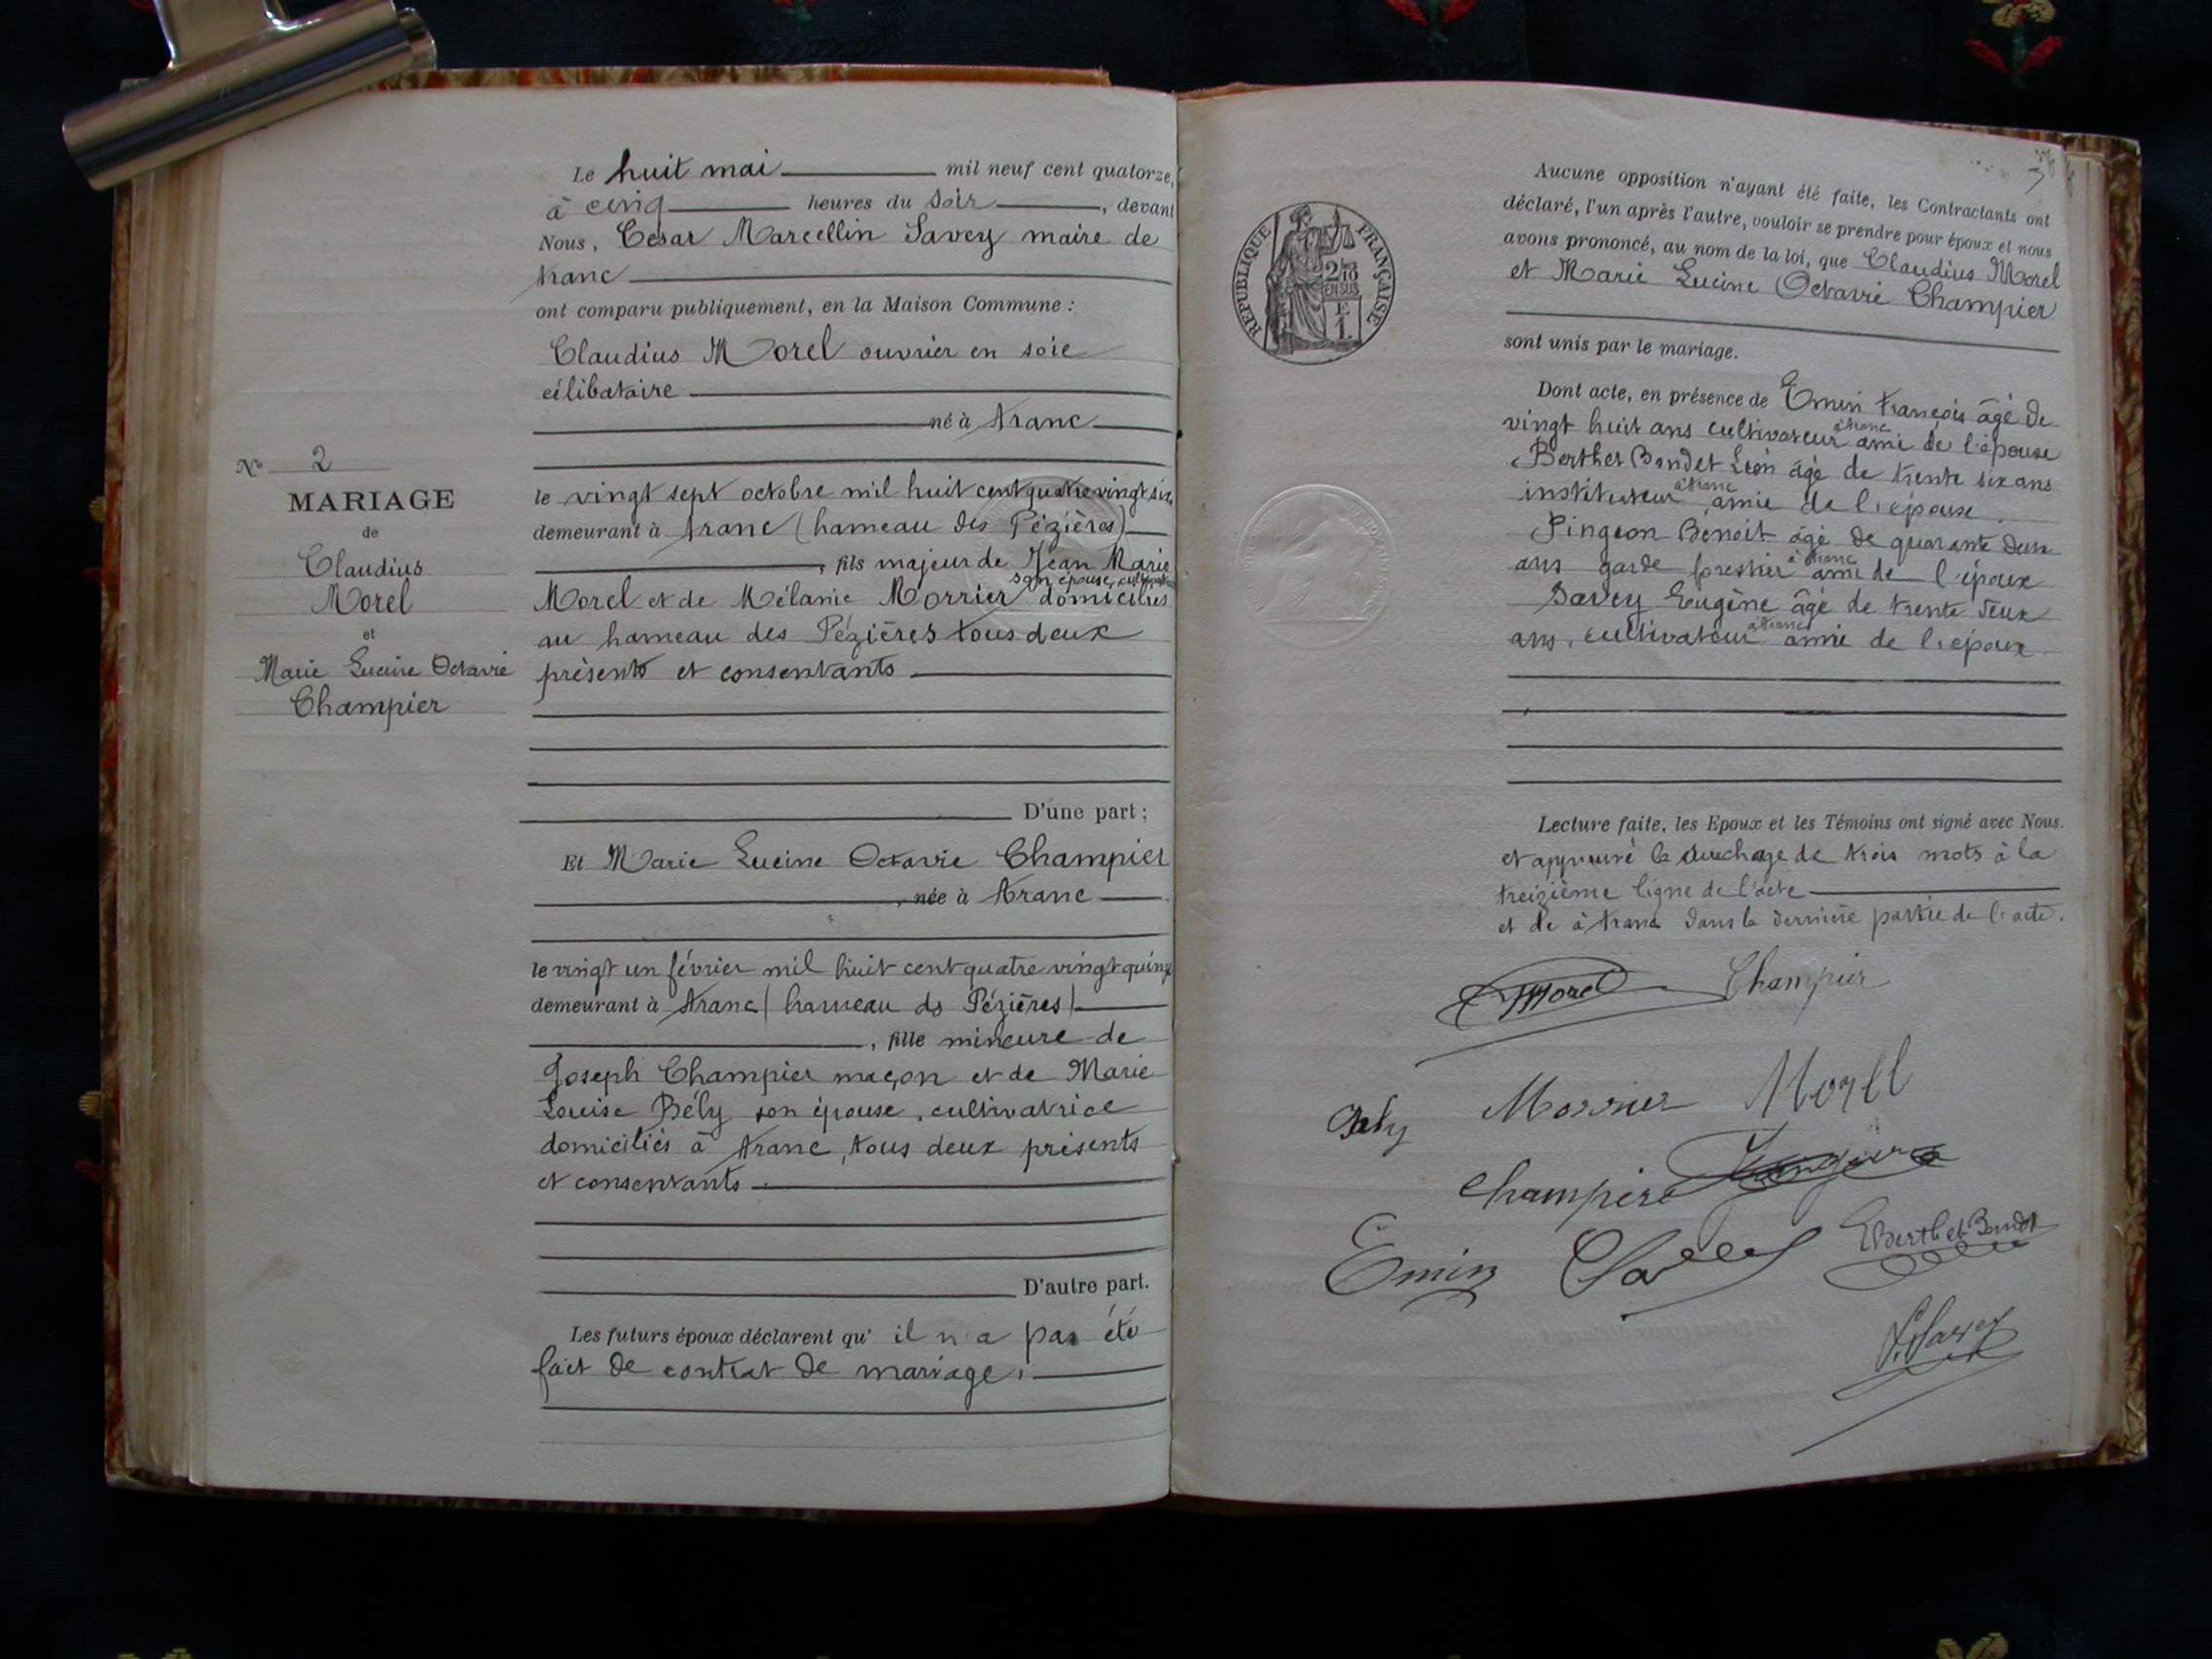 Le huit mai mil neuf cent quatorze,
à cinq heures du soir, devant
Nous, César Marcellin Savey maire de
Aranc
ont comparu publiquement, en la Maison Commune :
Claudius Morel ouvrier en soie
célibataire
né à Aranc
N° 2
MARIAGE
de
Claudius
Morel
et
Marie Lucine Octavie
Champier
le vingt sept octobre mil huit cent quatre vingt six
demeurant à Aranc (hameau des Pézières)
, fils majeur de Jean Marie
son épouse,
Morel et de Mélanie Morrier domiciliés
au hameau des Pézières tous deux
présents et consentants
D'une part ;
Et Marie Lucine Octavie Champier
, née à Aranc
le vingt un février mil huit cent quatre vingt quinze
demeurant à Aranc (hameau ds Pézières)
, fille mineure de
Joseph Champier maçon et de Marie
Louise Bély son épouse, cultivatrice
domiciliés à Aranc, tous deux présents
et consentants.
D'autre part.
Les futurs époux déclarent qu' il n'a pas été
fait de contrat de mariage.
REPUBLIQUE FRANÇAISE
2/10
EN SUS
E
1.
Aucune opposition n'ayant été faite, les Contractants ont
déclaré, l'un après l'autre, vouloir se prendre pour époux et nous
avons prononcé, au nom de la loi, que Claudius Morel
et Marie Lucine Octavie Champier
sont unis par le mariage.
Dont acte, en présence de Emin François âgé de
à Aranc
vingt huit ans cultivateur ami de l'épouse
Berthet Bondet Léon âgé de trente six ans
à Aranc
instituteur amie de l'épouse
Pingeon Benoit âgé de quarante deux
à Aranc
ans garde forestier ami de l'époux
Savey Eugène âgé de trente deux
à Aranc
ans, cultivateur amie de l'époux
Lecture faite, les Epoux et les Témoins ont signé avec Nous.
et approuvé la surchage de trois mots à la
treizième ligne de l'acte
et de à Aranc dans la dernière partie de l'acte.
Morel Champier
Bely Morrier Morel
Champier Pingeon
Emin Savey Berthet Bondet
Savey